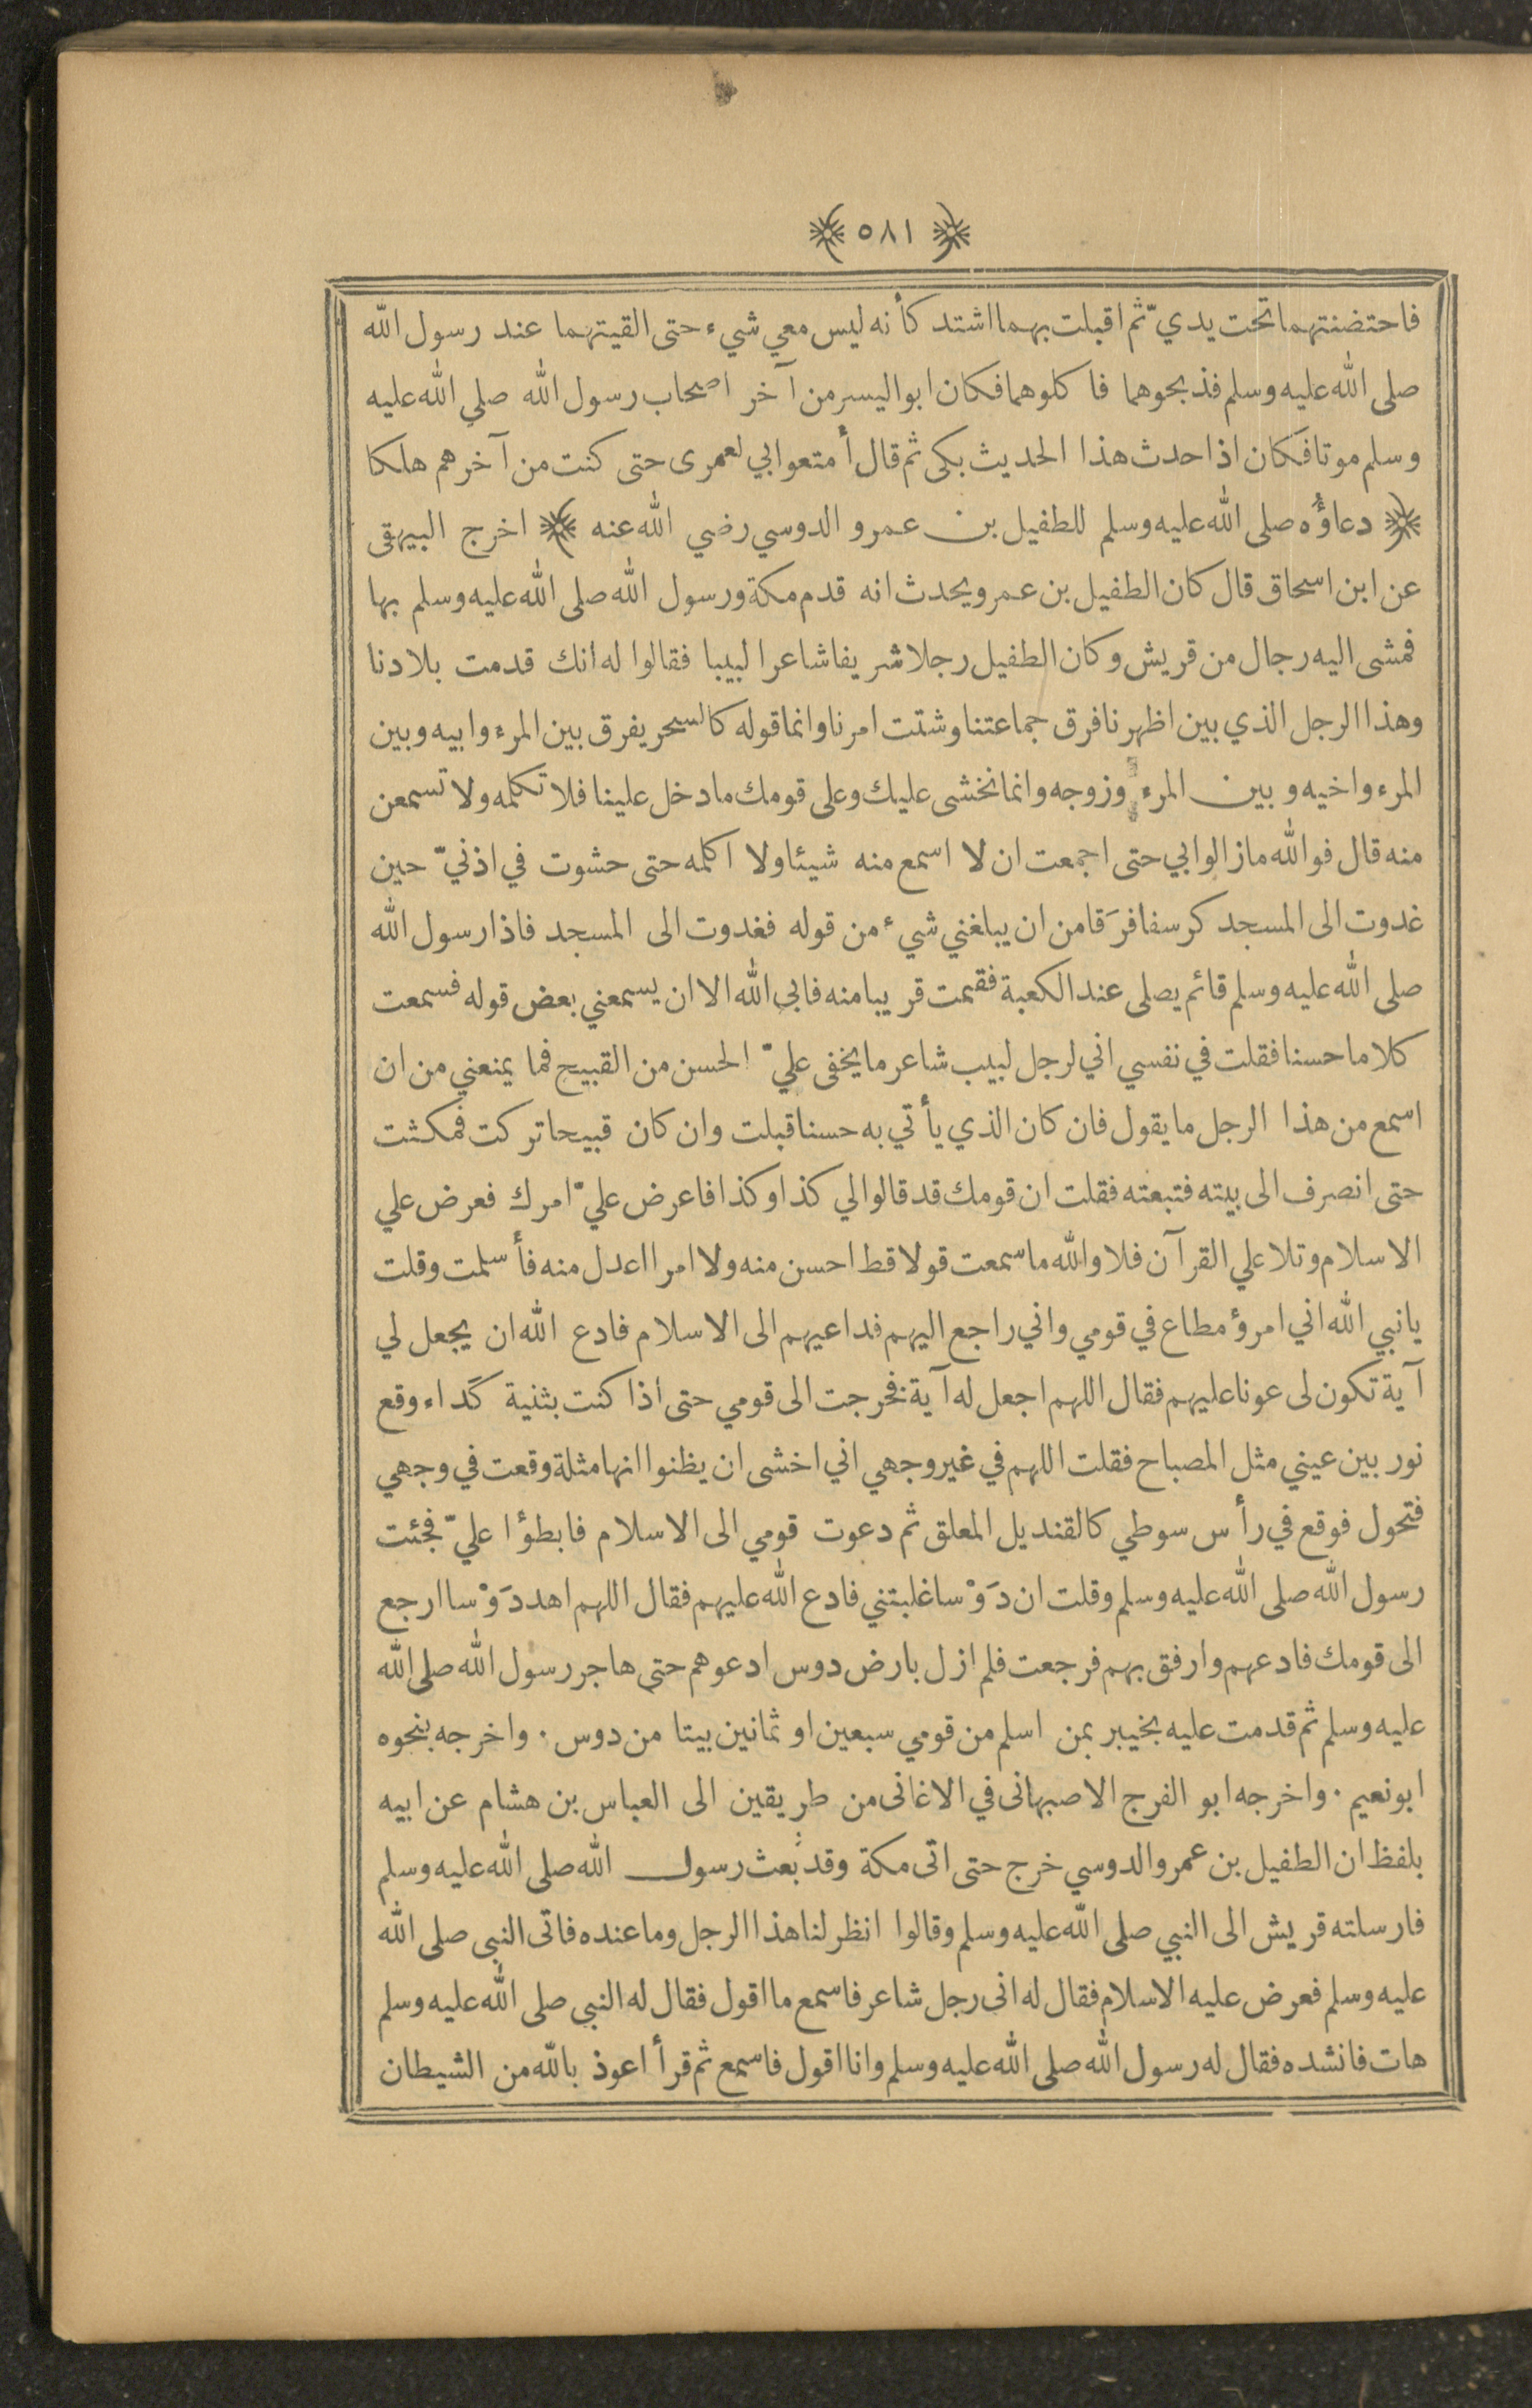 ﴿ ٥٨١ ﴾
فاحتضنتهما تحت يديّ ثم اقبلت بهما اشتد كأنه ليس معي شيء حتى القيتهما عند رسول الله
صلى الله عليه وسلم فذبحوهما فاكلوهما فكان ابو اليسر من آخر اصحاب رسول الله صلى الله عليه
وسلم موتا فكان اذا حدث هذا الحديث بكى ثم قال أمتعوا بي لعمرى حتى كنت من آخرهم هلكا
﴿ دعاؤه صلى الله عليه وسلم للطفيل بن عمرو الدوسي رضي الله عنه ﴾ اخرج البيهقى
عن ابن اسحاق قال كان الطفيل بن عمرو يحدث انه قدم مكة ورسول الله صلى الله عليه وسلم بها
فمشى اليه رجال من قريش وكان الطفيل رجلا شريفا شاعرا لبيبا فقالوا له انك قدمت بلادنا
وهذا الرجل الذي بين اظهرنا فرق جماعتنا وشتت امرنا وانما قوله كالسحر يفرق بين المرء وابيه وبين
المرء واخيه وبين المرء وزوجه وانما نخشى عليك وعلى قومك ما دخل علينا فلا تكلمه ولا تسمعن
منه قال فوالله ما زالوا بي حتى اجمعت ان لا اسمع منه شيئا ولا اكلمه حتى حشوت في اذنيّ حين
غدوت الى المسجد كرسفا فرَقا من ان يبلغني شيء من قوله فغدوت الى المسجد فاذا رسول الله
صلى الله عليه وسلم قائم يصلى عند الكعبة فقمت قريبا منه فابى الله الا ان يسمعني بعض قوله فسمعت
كلاما حسنا فقلت في نفسي اني لرجل لبيب شاعر ما يخفى عليّ الحسن من القبيح فما يمنعني من ان
اسمع من هذا الرجل ما يقول فان كان الذي يأتي به حسنا قبلت وان كان قبيحا تركت فمكثت
حتى انصرف الى بيته فتبعته فقلت ان قومك قد قالوا لي كذا وكذا فاعرض عليّ امرك فعرض علي
الاسلام وتلا علي القرآن فلا والله ما سمعت قولا قط احسن منه ولا امرا اعدل منه فأسلمت وقلت
يا نبي الله اني امرؤ مطاع في قومي واني راجع اليهم فداعيهم الى الاسلام فادع الله ان يجعل لي
آية تكون لى عونا عليهم فقال اللهم اجعل له آية فخرجت الى قومي حتى اذا كنت بثنية كَداء وقع
نور بين عيني مثل المصباح فقلت اللهم في غير وجهي اني اخشى ان يظنوا انها مثلة وقعت في وجهي
فتحول فوقع في رأس سوطي كالقنديل المعلق ثم دعوت قومي الى الاسلام فابطؤا عليّ فجئت
رسول الله صلى الله عليه وسلم وقلت ان دَوْسا غلبتني فادع الله عليهم فقال اللهم اهد دَوْسا ارجع
الى قومك فادعهم وارفق بهم فرجعت فلم ازل بارض دوس ادعوهم حتى هاجر رسول الله صلى الله
عليه وسلم ثم قدمت عليه بخيبر بمن اسلم من قومي سبعين او ثمانين بيتا من دوس . واخرجه بنحوه
ابو نعيم . واخرجه ابو الفرج الاصبهانى في الاغانى من طريقين الى العباس بن هشام عن ابيه
بلفظ ان الطفيل بن عمرو الدوسي خرج حتى اتى مكة وقد بُعث رسول الله صلى الله عليه وسلم
فارسلته قريش الى النبي صلى الله عليه وسلم وقالوا انظر لنا هذا الرجل وما عنده فاتى النبى صلى الله
عليه وسلم فعرض عليه الاسلام فقال له انى رجل شاعر فاسمع ما اقول فقال له النبى صلى الله عليه وسلم
هات فانشده فقال له رسول الله صلى الله عليه وسلم وانا اقول فاسمع ثم قرأ اعوذ بالله من الشيطان